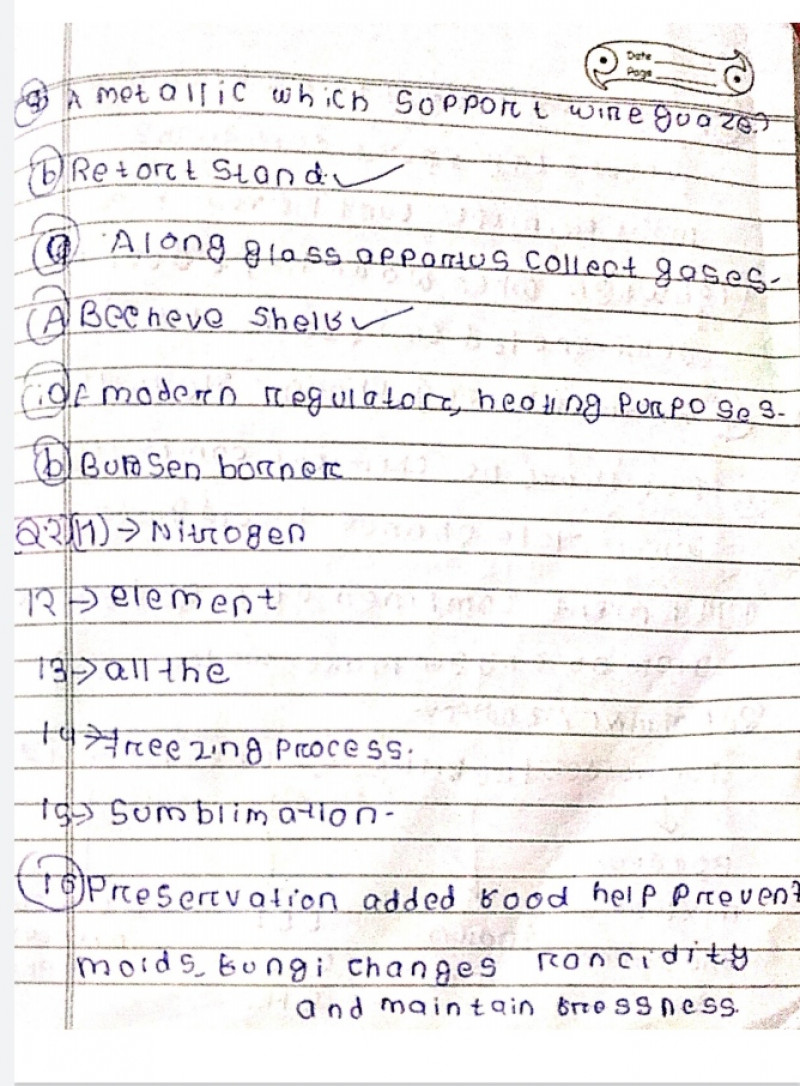 Date
Page
8) A metallic which Sopport wire guaze?
b) Retort Stand.
9) Along glass appartus collect gases.
A) Beeheve Shells
10) modern regulator, heating Purposes.
b) Bunsen borner
Q2 11) → Nitrogen
12 → element
13 → all the
14 → freezing process.
15 → Sumblimation.
16) Preservation added food help prevent
molds, fungi changes rancidity
and maintain fressness.